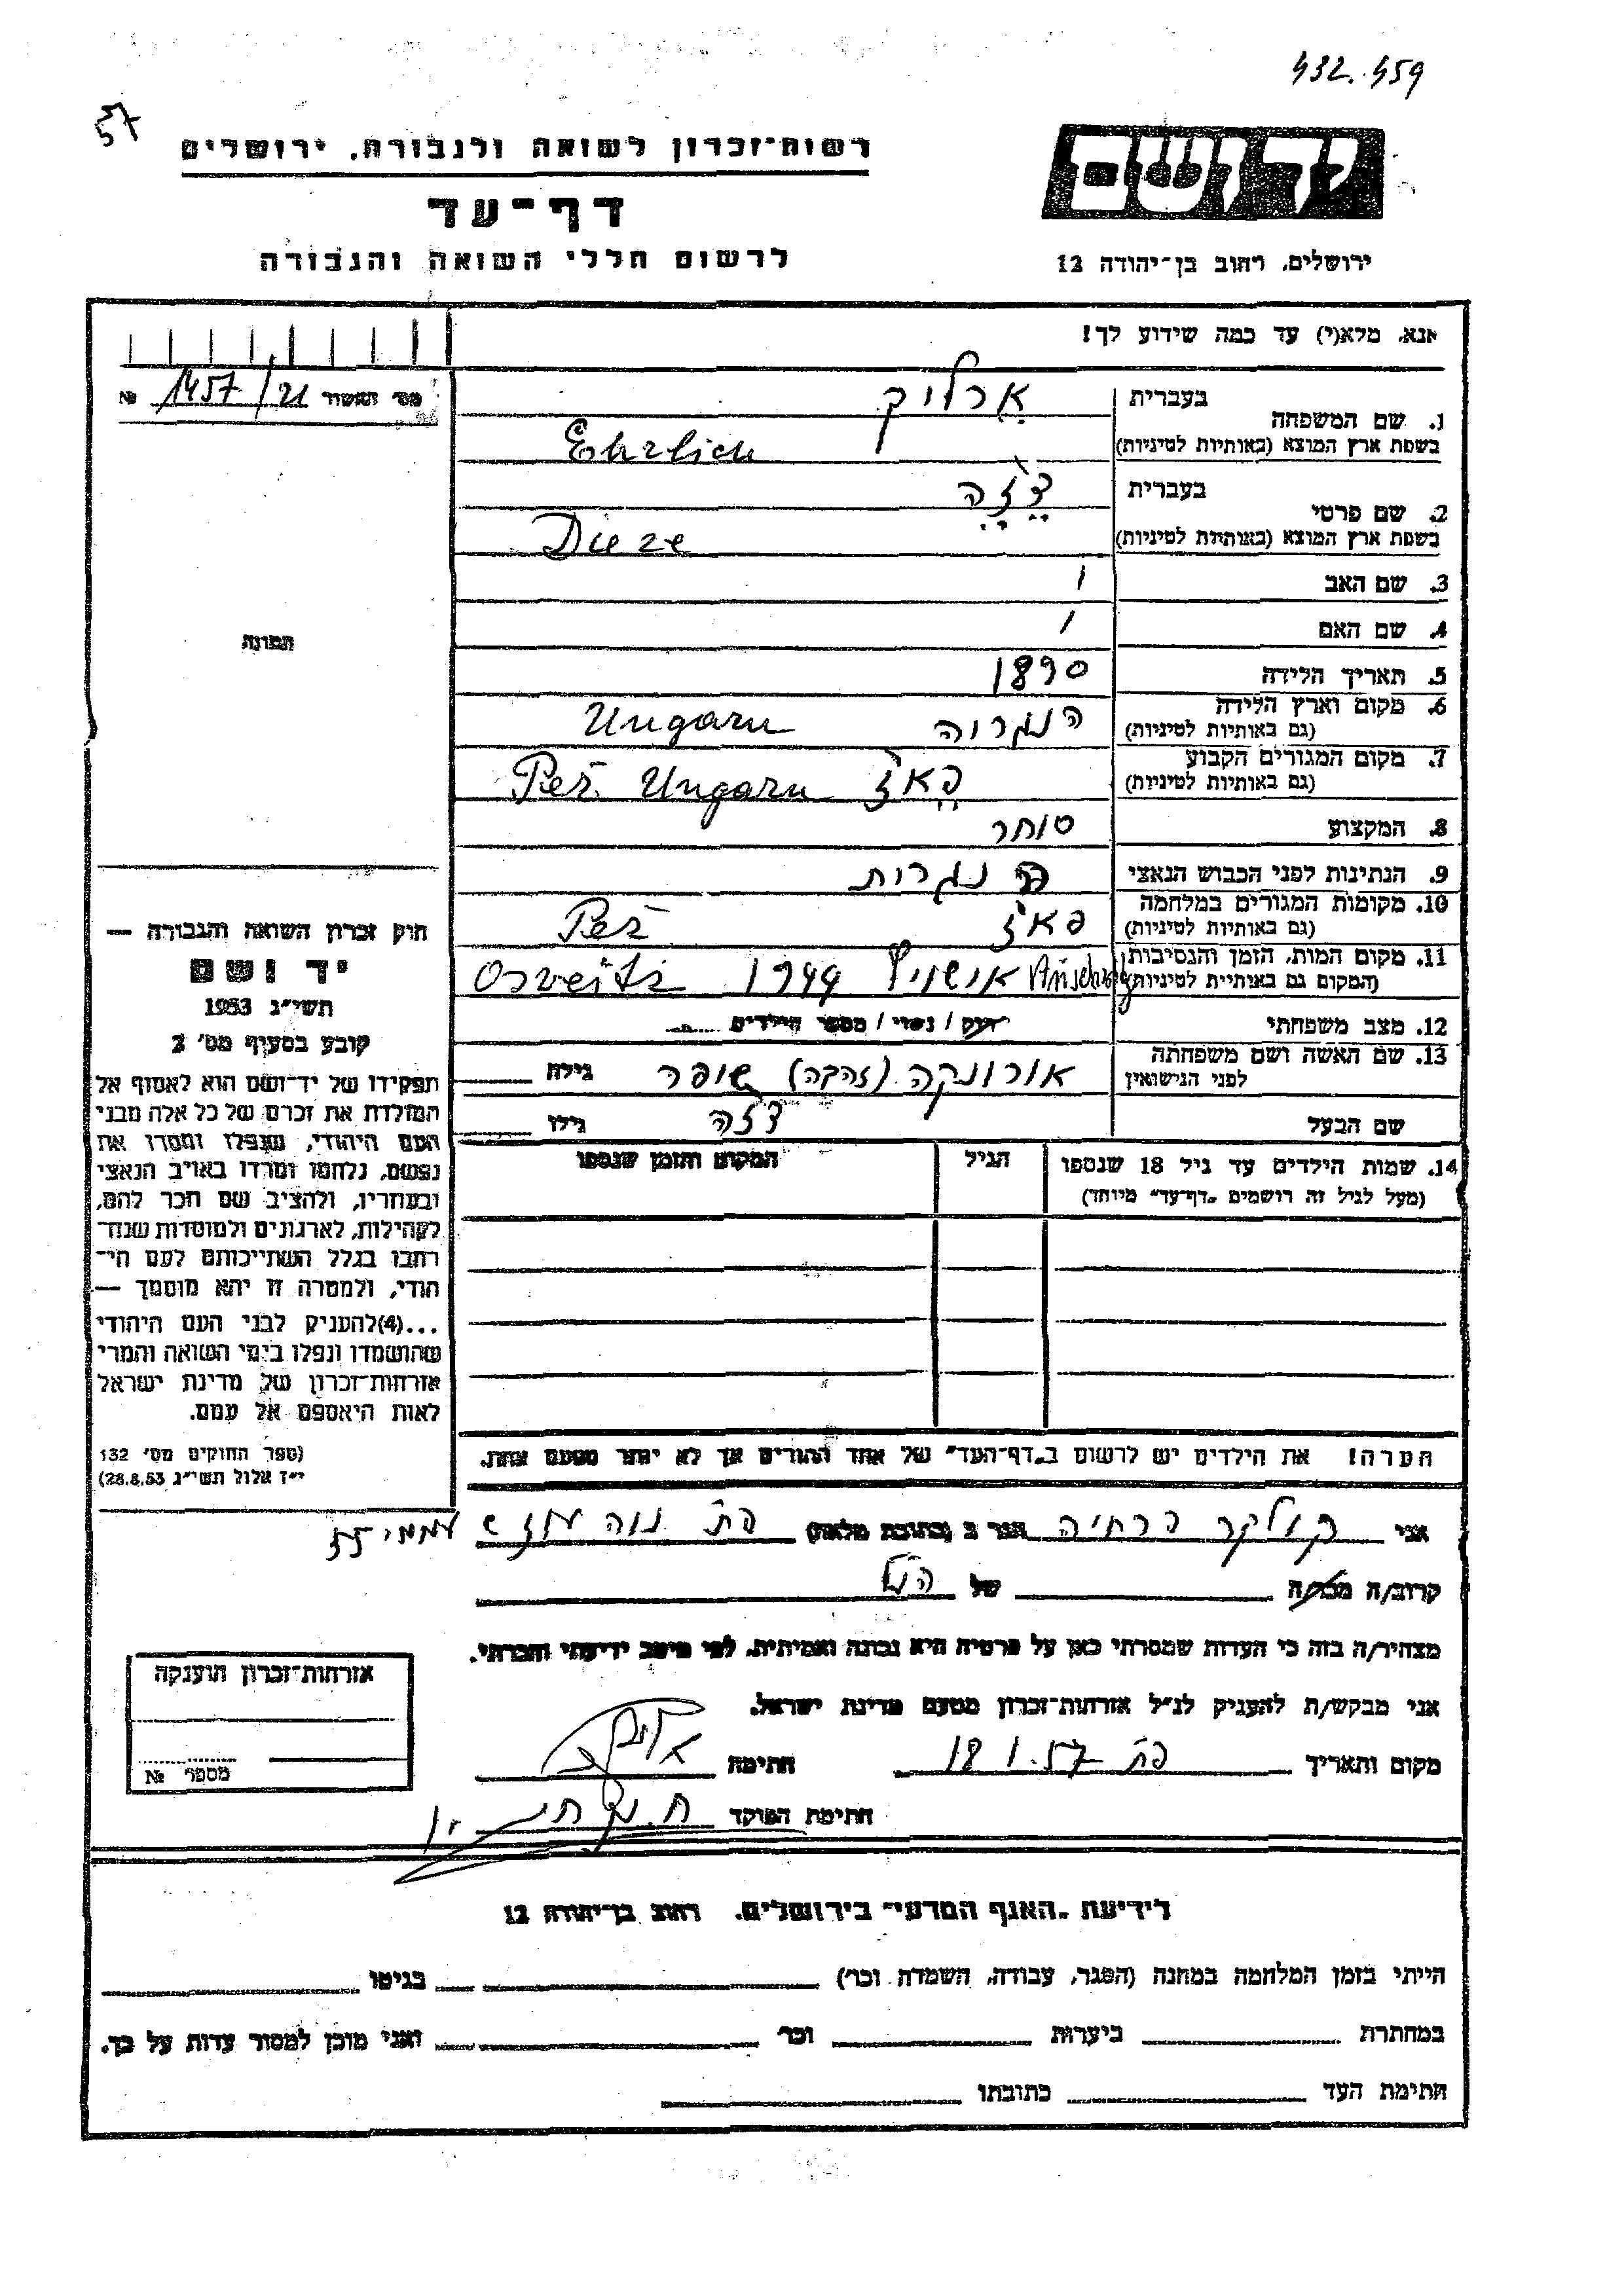 432.459
57
רשות-זכרון לשואה ולגבורה, ירושלים
דף-עד
לרשום חללי השואה והגבורה
ידושם
ירושלים, רחוב בן-יהודה 12
אנא, מלא(י) עד כמה שידוע לך!
מס' תאשור 1457/21 №
1. שם המשפחה
בעברית ארליך
בשפת ארץ המוצא (באותיות לטיניות) Ehrlich
2. שם פרטי
בעברית דזה
בשפת ארץ המוצא (באותיות לטיניות) Dieze
3. שם האב /
4. שם האם /
5. תאריך הלידה 1890
6. מקום וארץ הלידה הונגרוה Ungaru
(גם באותיות לטיניות)
7. מקום המגורים הקבוע פאז Peš. Ungaru
(גם באותיות לטיניות)
8. המקצוע סוחר
9. הנתינות לפני הכבוש הנאצי נגרות
10. מקומות המגורים במלחמה פאז Peš
(גם באותיות לטיניות)
11. מקום המות, הזמן והנסיבות אושויץ 1944 Osveitz
(המקום גם באותיות לטיניות)
12. מצב משפחתי רווק / נשוי / מספר הילדים
13. שם האשה ושם משפחתה אורונקה (זהבה) שופר גילה
לפני הנישואין
שם הבעל דזה גילו
14. שמות הילדים עד גיל 18 שנספו הגיל המקום והזמן שנספו
(מעל לגיל זה רושמים "דף-עד" מיוחד)
הערה! את הילדים יש לרשום ב"דף-העד" של אחד ההורים אך לא יותר מפעם אחת.
תמונה
חוק זכרון השואה והגבורה —
יד ושם
תשי"ג 1953
קובע בסעיף מס' 2
תפקידו של יד-ושם הוא לאסוף אל
המולדת את זכרם של כל אלה מבני
העם היהודי, שנפלו ומסרו את
נפשם, נלחמו ומרדו באויב הנאצי
ובעוזריו, ולהציב שם וזכר להם,
לקהילות, לארגונים ולמוסדות שנח־
רבו בגלל השתייכותם לעם הי־
הודי, ולמטרה זו יהא מוסמך —
...(4)להעניק לבני העם היהודי
שהושמדו ונפלו בימי השואה והמרי
אזרחות-זכרון של מדינת ישראל
לאות היאספם אל עמם.
(ספר החוקים מס' 132
י"ז אלול תשי"ג 28.8.53)
אני הגר ב (כתובת מלאה) פת נוה עוז
קרוב/ה מכר/ה של הנ"ל
מצהיר/ה בזה כי העדות שמסרתי כאן על פרטיה היא נכונה ואמיתית, לפי מיטב ידיעתי והכרתי.
אני מבקש/ת להעניק לנ"ל אזרחות-זכרון מטעם מדינת ישראל.
מקום ותאריך פת 18.1.57 חתימה
חתימת הפוקד
אזרחות-זכרון הוענקה
מספר №
לידיעת "האגף המדעי" בירושלים, רחוב בן-יהודה 12
הייתי בזמן המלחמה במחנה (הסגר, עבודה, השמדה וכו') בגיטו
במחתרת ביערות וכו' ואני מוכן למסור עדות על כך.
חתימת העד כתובתו